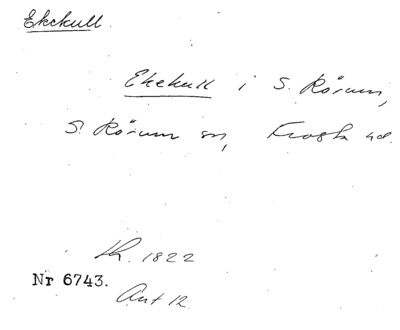 Ekekull
Ekekull i S. Rörum,
S. Rörum sn, Frosta hd.
Kh. 1822
Nr 6743.
Ant 12.